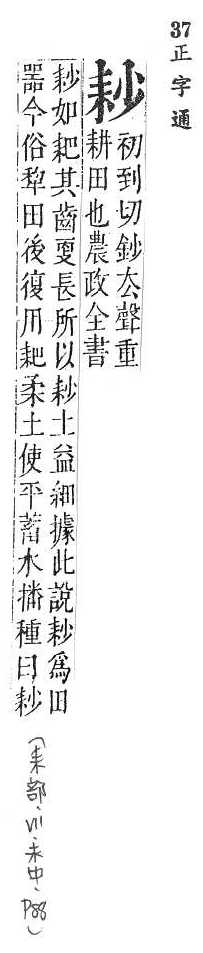 37正字通
耖 初到切鈔去聲重
耕田也農政全書
耖如耙其齒更長所以耖土益細據此說耖爲田
器今俗犂田後復用耙柔土使平蓄水播種曰耖
(耒部、VII、未中、P88)